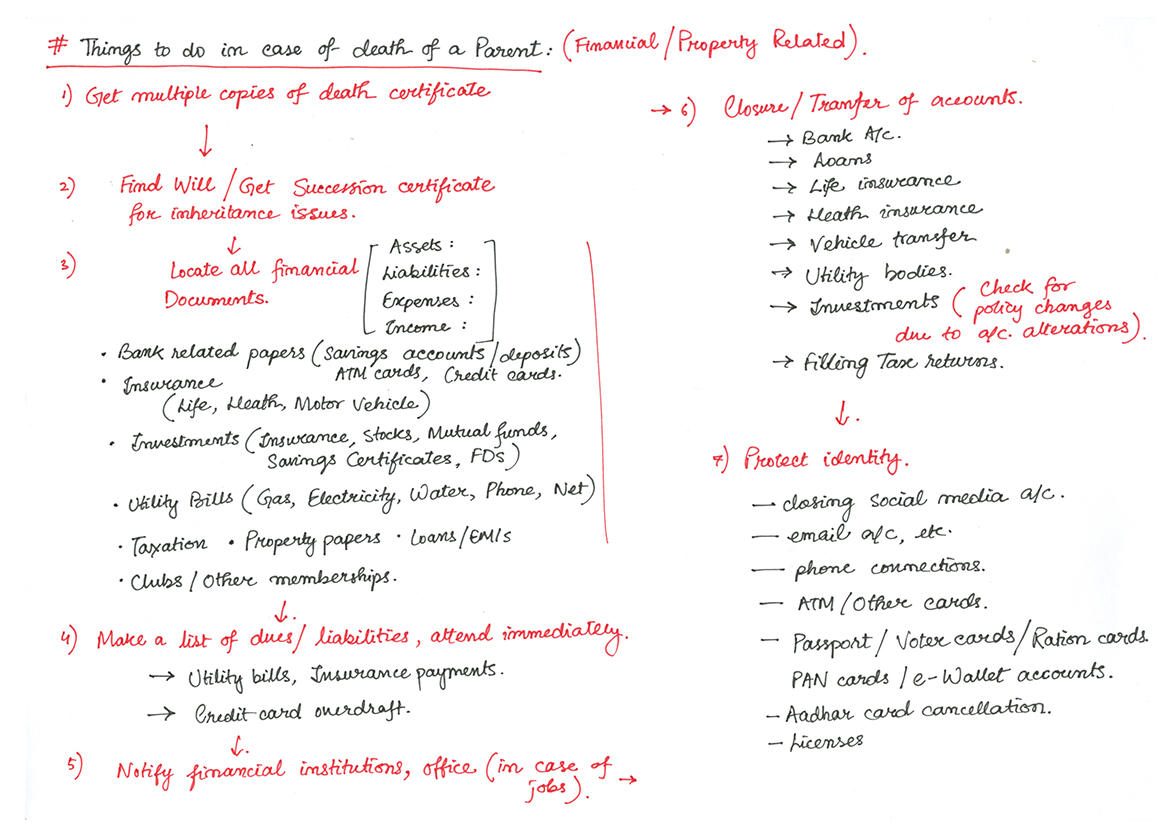 # Things to do in case of death of a Parent: (Financial/Property Related).
1) Get multiple copies of death certificate
2) Find Will/Get Succession certificate
for inheritance issues.
3) Locate all financial
Documents.
Assets :
Liabilities :
Expenses :
Income :
· Bank related papers (Savings accounts/deposits)
ATM cards, Credit cards.
· Insurance
(Life, Heath, Motor Vehicle)
· Investments (Insurance, Stocks, Mutual funds,
Savings Certificates, FDs)
· Utility Bills (Gas, Electricity, Water, Phone, Net)
· Taxation · Property papers · Loans/EMIs
· Clubs/Other memberships.
4) Make a list of dues/liabilities, attend immediately.
→ Utility bills, Insurance payments.
→ Credit card overdraft.
5) Notify financial institutions, office (in case of
jobs). →
→ 6) Closure/Tranfer of accounts.
→ Bank A/c.
→ Loans
→ Life insurance
→ Heath insurance
→ Vehicle transfer
→ Utility bodies.
→ Investments (Check for
policy changes
due to a/c. alterations).
→ Filling Tax returns.
7) Protect identity.
— closing social media a/c.
— email a/c, etc.
— phone connections.
— ATM/Other cards.
— Passport/Voter cards/Ration cards.
PAN cards/e-Wallet accounts.
— Aadhar card cancellation.
— Licenses